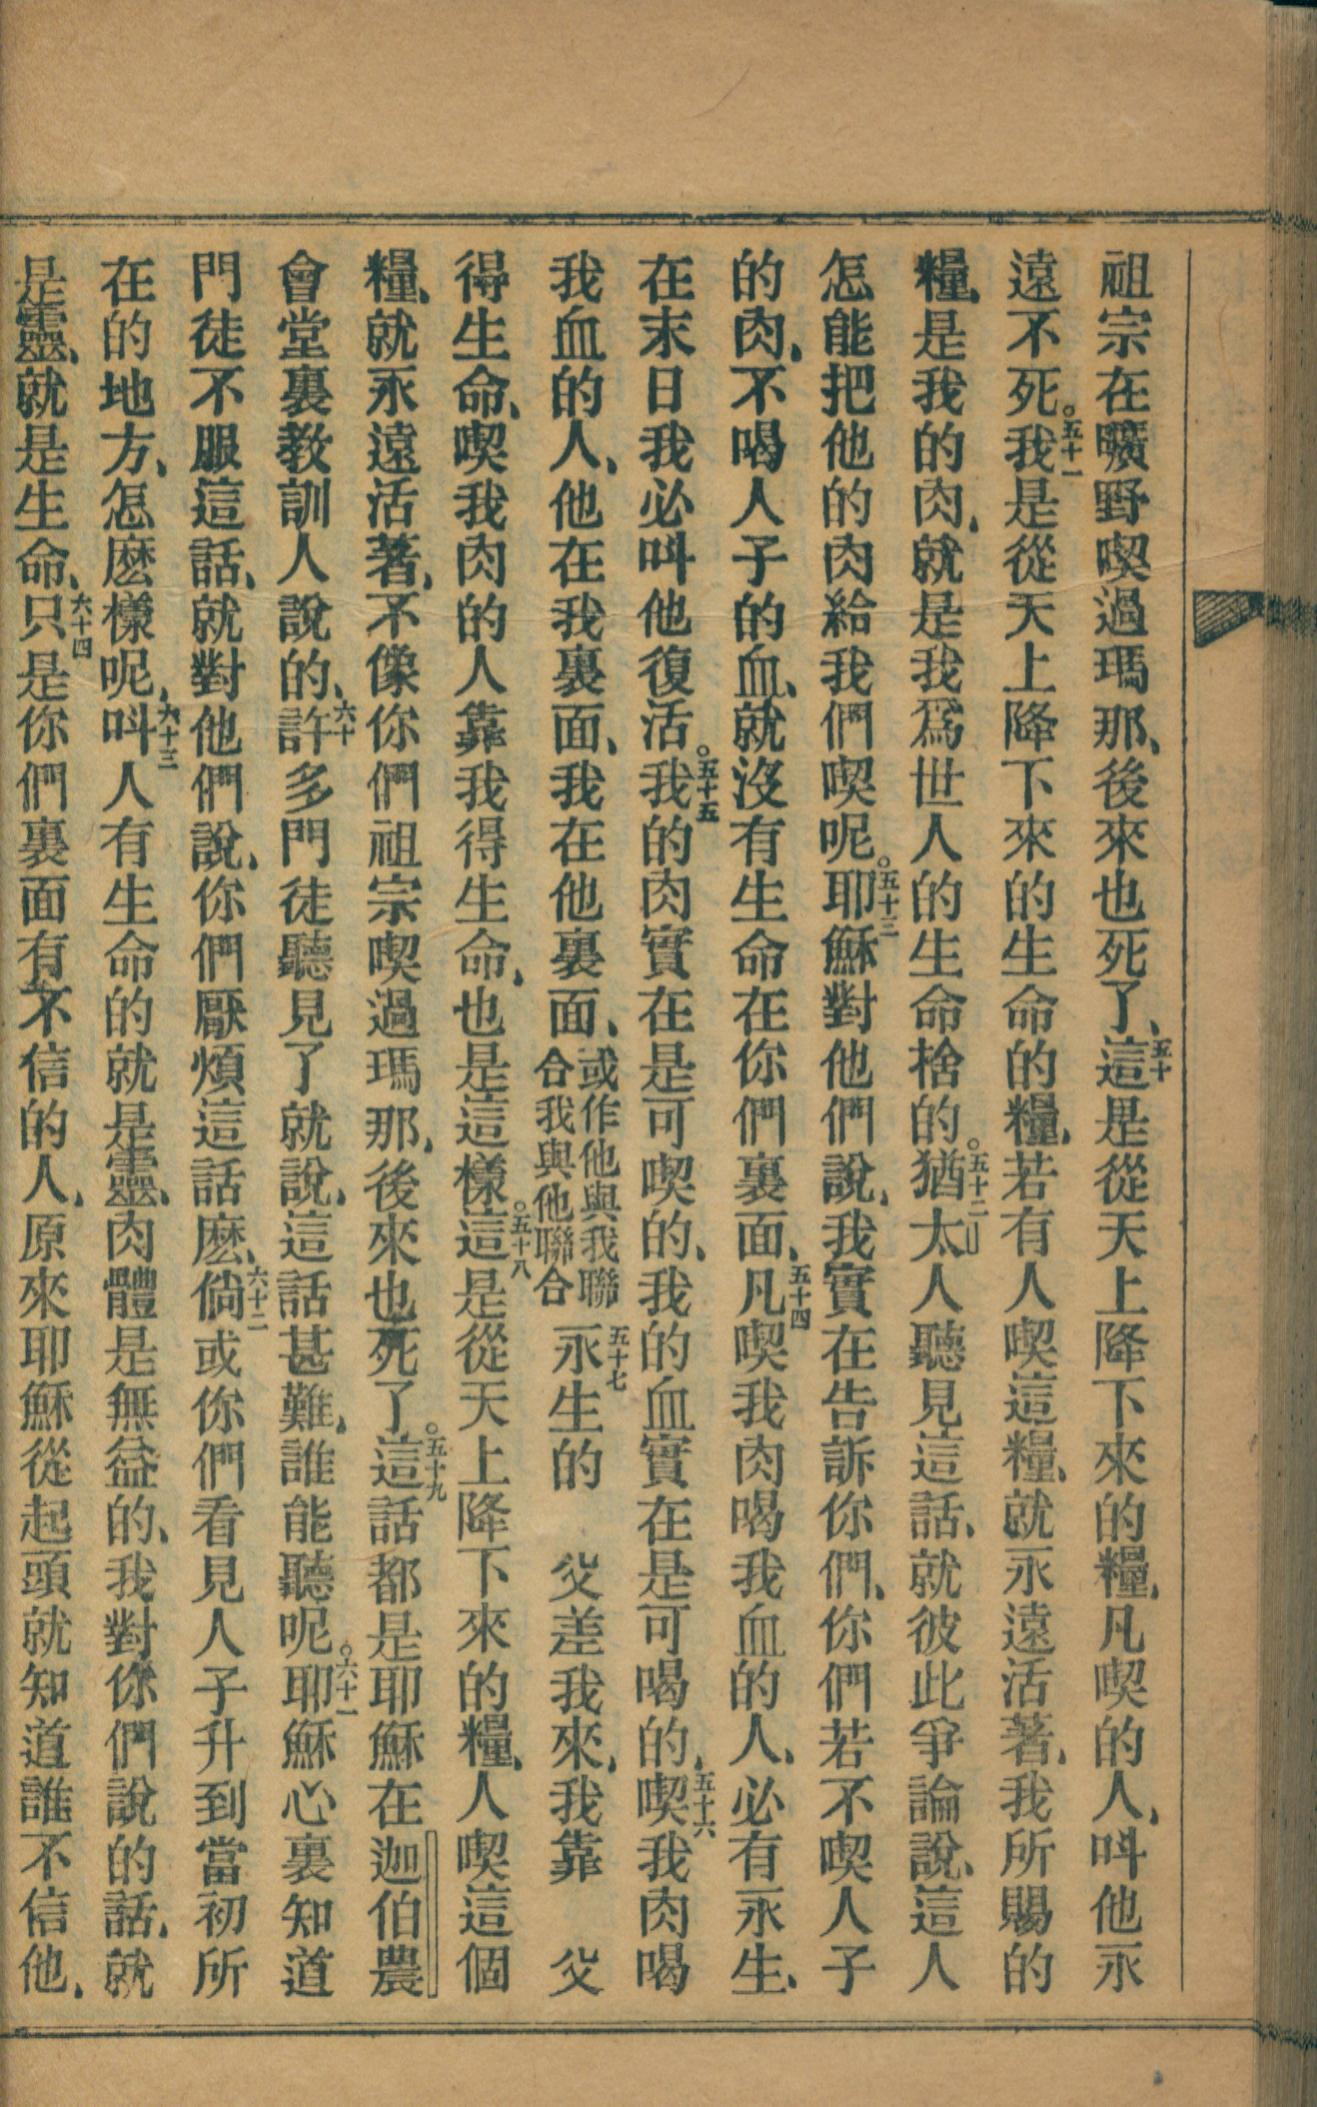 祖宗在曠野喫過瑪那、後來也死了、五十這是從天上降下來的糧、凡喫的人、叫他永
遠不死。五十一我是從天上降下來的生命的糧、若有人喫這糧、就永遠活著、我所賜的
糧、是我的肉、就是我爲世人的生命捨的。五十二猶太人聽見這話、就彼此爭論說、這人
怎能把他的肉給我們喫呢。五十三耶穌對他們說、我實在告訴你們、你們若不喫人子
的肉、不喝人子的血、就沒有生命在你們裏面、五十四凡喫我肉喝我血的人、必有永生、
在末日我必叫他復活。五十五我的肉實在是可喫的、我的血實在是可喝的、五十六喫我肉喝
我血的人、他在我裏面、我在他裏面、或作他與我聯合我與他聯合 五十七永生的 父差我來、我靠 父
得生命、喫我肉的人靠我得生命、也是這樣。五十八這是從天上降下來的糧、人喫這個
糧、就永遠活著、不像你們祖宗喫過瑪那、後來也死了。五十九這話都是耶穌在迦伯農
會堂裏教訓人說的、六十許多門徒聽見了就說、這話甚難、誰能聽呢。六十一耶穌心裏知道
門徒不服這話、就對他們說、你們厭煩這話麽、六十二倘或你們看見人子升到當初所
在的地方、怎麽樣呢、六十三叫人有生命的就是靈、肉體是無益的、我對你們說的話、就
是靈、就是生命、六十四只是你們裏面有不信的人、原來耶穌從起頭就知道誰不信他、